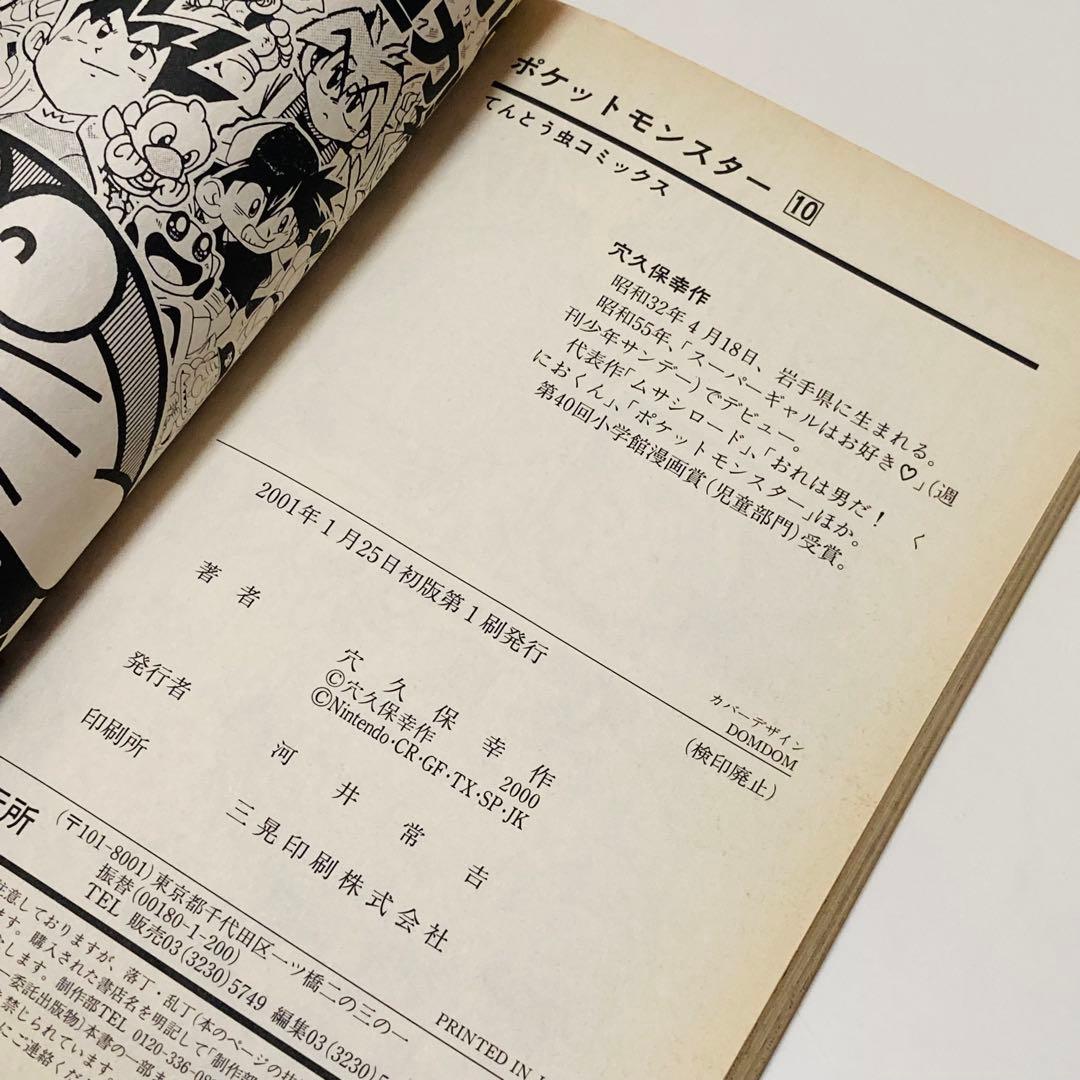 ポケットモンスター 10
てんとう虫コミックス
穴久保幸作
昭和32年4月18日、岩手県に生まれる。
昭和55年、「スーパーギャルはお好き♡」(週
刊少年サンデー)でデビュー。
代表作「ムサシロード」、「おれは男だ! く
におくん」、「ポケットモンスター」ほか。
第40回小学館漫画賞(児童部門)受賞。
2001年1月25日初版第1刷発行
カバーデザイン
DOMDOM
(検印廃止)
著者 穴久保幸作
©穴久保幸作 2000
©Nintendo・CR・GF・TX・SP・JK
発行者 河井常吉
印刷所 三晃印刷株式会社
所
(〒101-8001)東京都千代田区一ツ橋二の三の一
振替(00180-1-200)
TEL 販売03(3230)5749 編集03(3230)5
PRINTED IN
注意しておりますが、落丁・乱丁(本のページの
ます。購入された書店名を明記して「制作部
たします。制作部TEL 0120-336-0
委託出版物)本書の一部ま
禁じられています。
にご連絡くだ